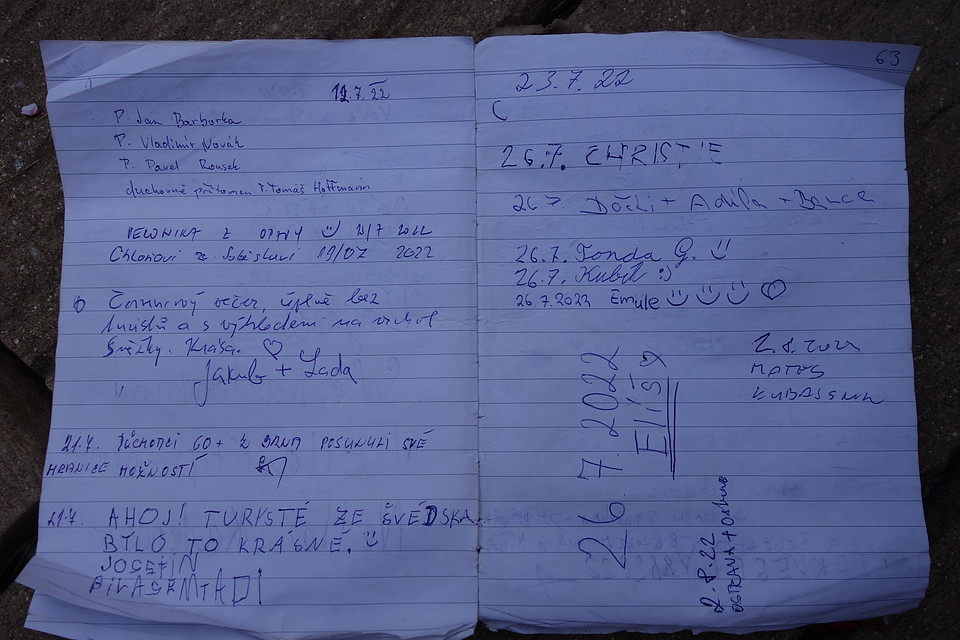 19.7. 22
P. Jan Barborka
P. Vladimír Novák
P. Pavel Rousek
duchovně přítomen P. Tomáš Hoffmann
VERONIKA Z OPAVY 2022
19/07 2022
Červencový večer, úplně bez
turistů a s výhledem na vrchol
Sněžky. Krása. ♡
Jakub + Lada
21.7. 60+ Z BRNA POSUNULI SVÉ
HRANICE MOŽNOSTÍ
21.7. AHOJ! TURISTÉ ZE ŠVÉDSKA.
BYLO TO KRÁSNÉ.
JOSEFIN
63
23.7. 22
26.7. CHRISTIE
26.7 + Adéla +
26.7. Fonda G.
26.7. Kubík :)
26.7.2022 Emule ♡
26.7.2022
Eliš
2.8.2022
MATES
2.8.22
OSTRAVA +